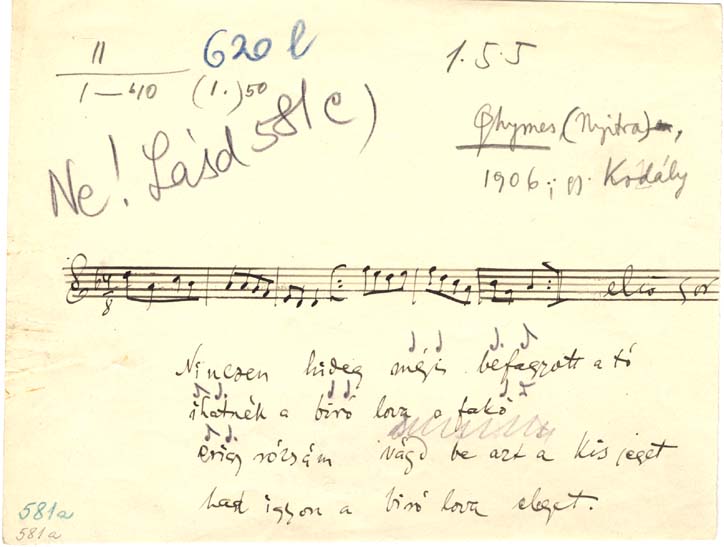 II
620 l
1.5.5
1—40
(1.) 50
Ne! Lásd 581c)
Ghymes, (Nyitra),
1906; gy. Kodály
4
8
első sor
Ninczen hideg mégis befagyott a tó
ihatnék a biró lova a fakó
erigy rózsám vágd be azt a kis jeget
had igyon a biró lova eleget.
581a
581a